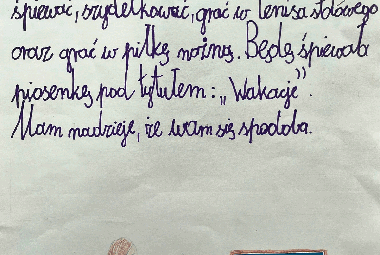 śpiewać, szydełkować, grać w tenisa stołowego
oraz grać w piłkę nożną. Będę śpiewała
piosenkę pod tytułem: „Wakacje”.
Mam nadzieję, że wam się spodoba.